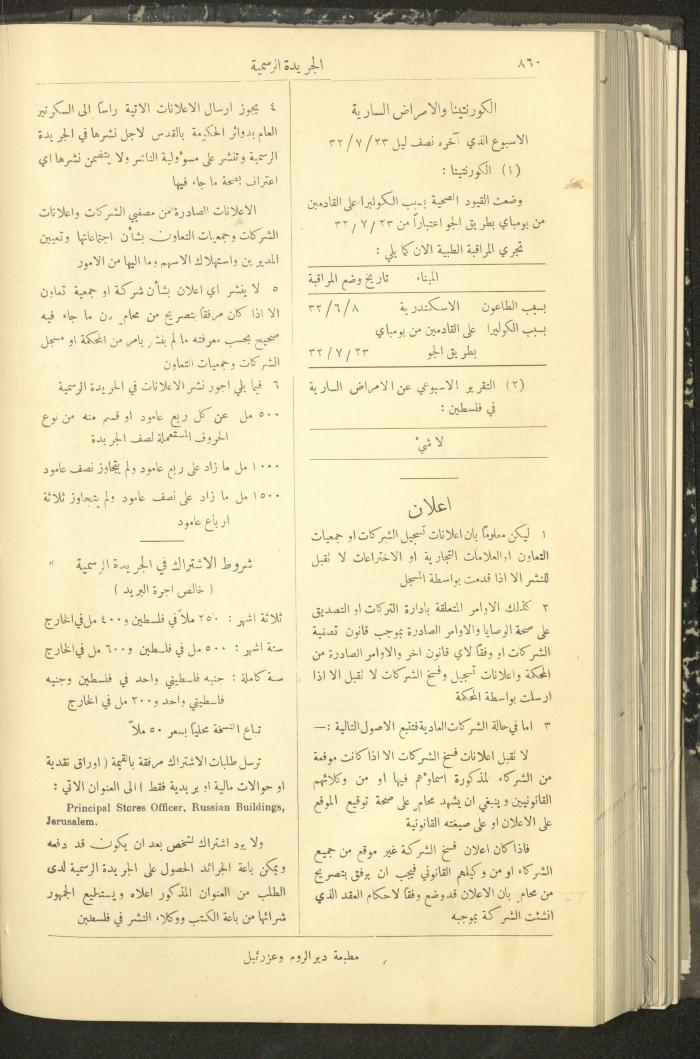 ٨٦٠
الجريدة الرسمية
الكورنتينا والامراض السارية
الاسبوع الذي آخره نصف ليل ٢٣/ ٧/ ٣٢
(١) الكورنتينا :
وضعت القيود الصحية بسبب الكوليرا على القادمين
من بومباي بطريق الجو اعتباراً من ٢٣/ ٧/ ٣٢
تجري المراقبة الطبية الان كما يلي :
الميناء تاريخ وضع المراقبة
بسبب الطاعون الاسكندرية ٨/ ٦/ ٣٢
بسبب الكوليرا على القادمين من بومباي
بطريق الجو ٢٣/ ٧/ ٣٢
(٢) التقرير الاسبوعي عن الامراض السارية
في فلسطين :
لا شيء
اعلان
١ ليكن معلوماً بان اعلانات تسجيل الشركات او جمعيات
التعاون او العلامات التجارية او الاختراعات لا تقبل
للنشر الا اذا قدمت بواسطة المسجل
٢ كذلك الاوامر المتعلقة بادارة التركات او التصديق
على صحة الوصايا والاوامر الصادرة بموجب قانون تصفية
الشركات او وفقاً لاي قانون اخر والاوامر الصادرة من
المحكمة واعلانات تسجيل وفسخ الشركات لا تقبل الا اذا
ارسلت بواسطة المحكمة
٣ اما في حالة الشركات العادية فتتبع الاصول التالية :—
لا تقبل اعلانات فسخ الشركات الا اذا كانت موقعة
من الشركاء المذكورة اسماؤهم فيها او من وكلائهم
القانونيين وينبغي ان يشهد محام على صحة توقيع الموقع
على الاعلان او على صيغته القانونية
فاذا كان اعلان فسخ الشركة غير موقع من جميع
الشركاء او من وكيلهم القانوني فيجب ان يرفق بتصريح
من محام بان الاعلان قد وضع وفقاً لاحكام العقد الذي
انشئت الشركة بموجبه
٤ يجوز ارسال الاعلانات الاتية راساً الى السكرتير
العام بدوائر الحكومة بالقدس لاجل نشرها في الجريدة
الرسمية وتنشر على مسؤولية الناشر ولا يتضمن نشرها اي
اعتراف بصحة ما جاء فيها
الاعلانات الصادرة من مصفيي الشركات واعلانات
الشركات وجمعيات التعاون بشأن اجتماعاتها وتعيين
المديرين واستهلاك الاسهم وما اليها من الامور
٥ لا ينشر اي اعلان بشأن شركة او جمعية تعاون
الا اذا كان مرفقاً بتصريح من محام بان ما جاء فيه
صحيح بحسب معرفته ما لم ينشر بامر من المحكمة او مسجل
الشركات وجمعيات التعاون
٦ فيما يلي اجور نشر الاعلانات في الجريدة الرسمية
٥٠٠ مل عن كل ربع عامود او قسم منه من نوع
الحروف المستعملة لصف الجريدة
١٠٠٠ مل ما زاد على ربع عامود ولم يتجاوز نصف عامود
١٥٠٠ مل ما زاد على نصف عامود ولم يتجاوز ثلاثة
ارباع عامود
شروط الاشتراك في الجريدة الرسمية
( خالص اجرة البريد )
ثلاثة اشهر : ٢٥٠ ملاً في فلسطين و٤٠٠ مل في الخارج
ستة اشهر : ٥٠٠ مل في فلسطين و٦٠٠ مل في الخارج
سنة كاملة : جنيه فلسطيني واحد في فلسطين وجنيه
فلسطيني واحد و٢٠٠ مل في الخارج
تباع النسخة محلياً بسعر ٥٠ ملاً
ترسل طلبات الاشتراك مرفقة بالقيمة ( اوراق نقدية
او حوالات مالية او بريدية فقط ) الى العنوان الاتي :
Principal Stores Officer, Russian Buildings,
Jerusalem.
ولا يرد اشتراك لشخص بعد ان يكون قد دفعه
ويمكن باعة الجرائد الحصول على الجريدة الرسمية لدى
الطلب من العنوان المذكور اعلاه ويستطيع الجمهور
شرائها من باعة الكتب ووكلاء النشر في فلسطين
مطبعة دير الروم وعزرئيل